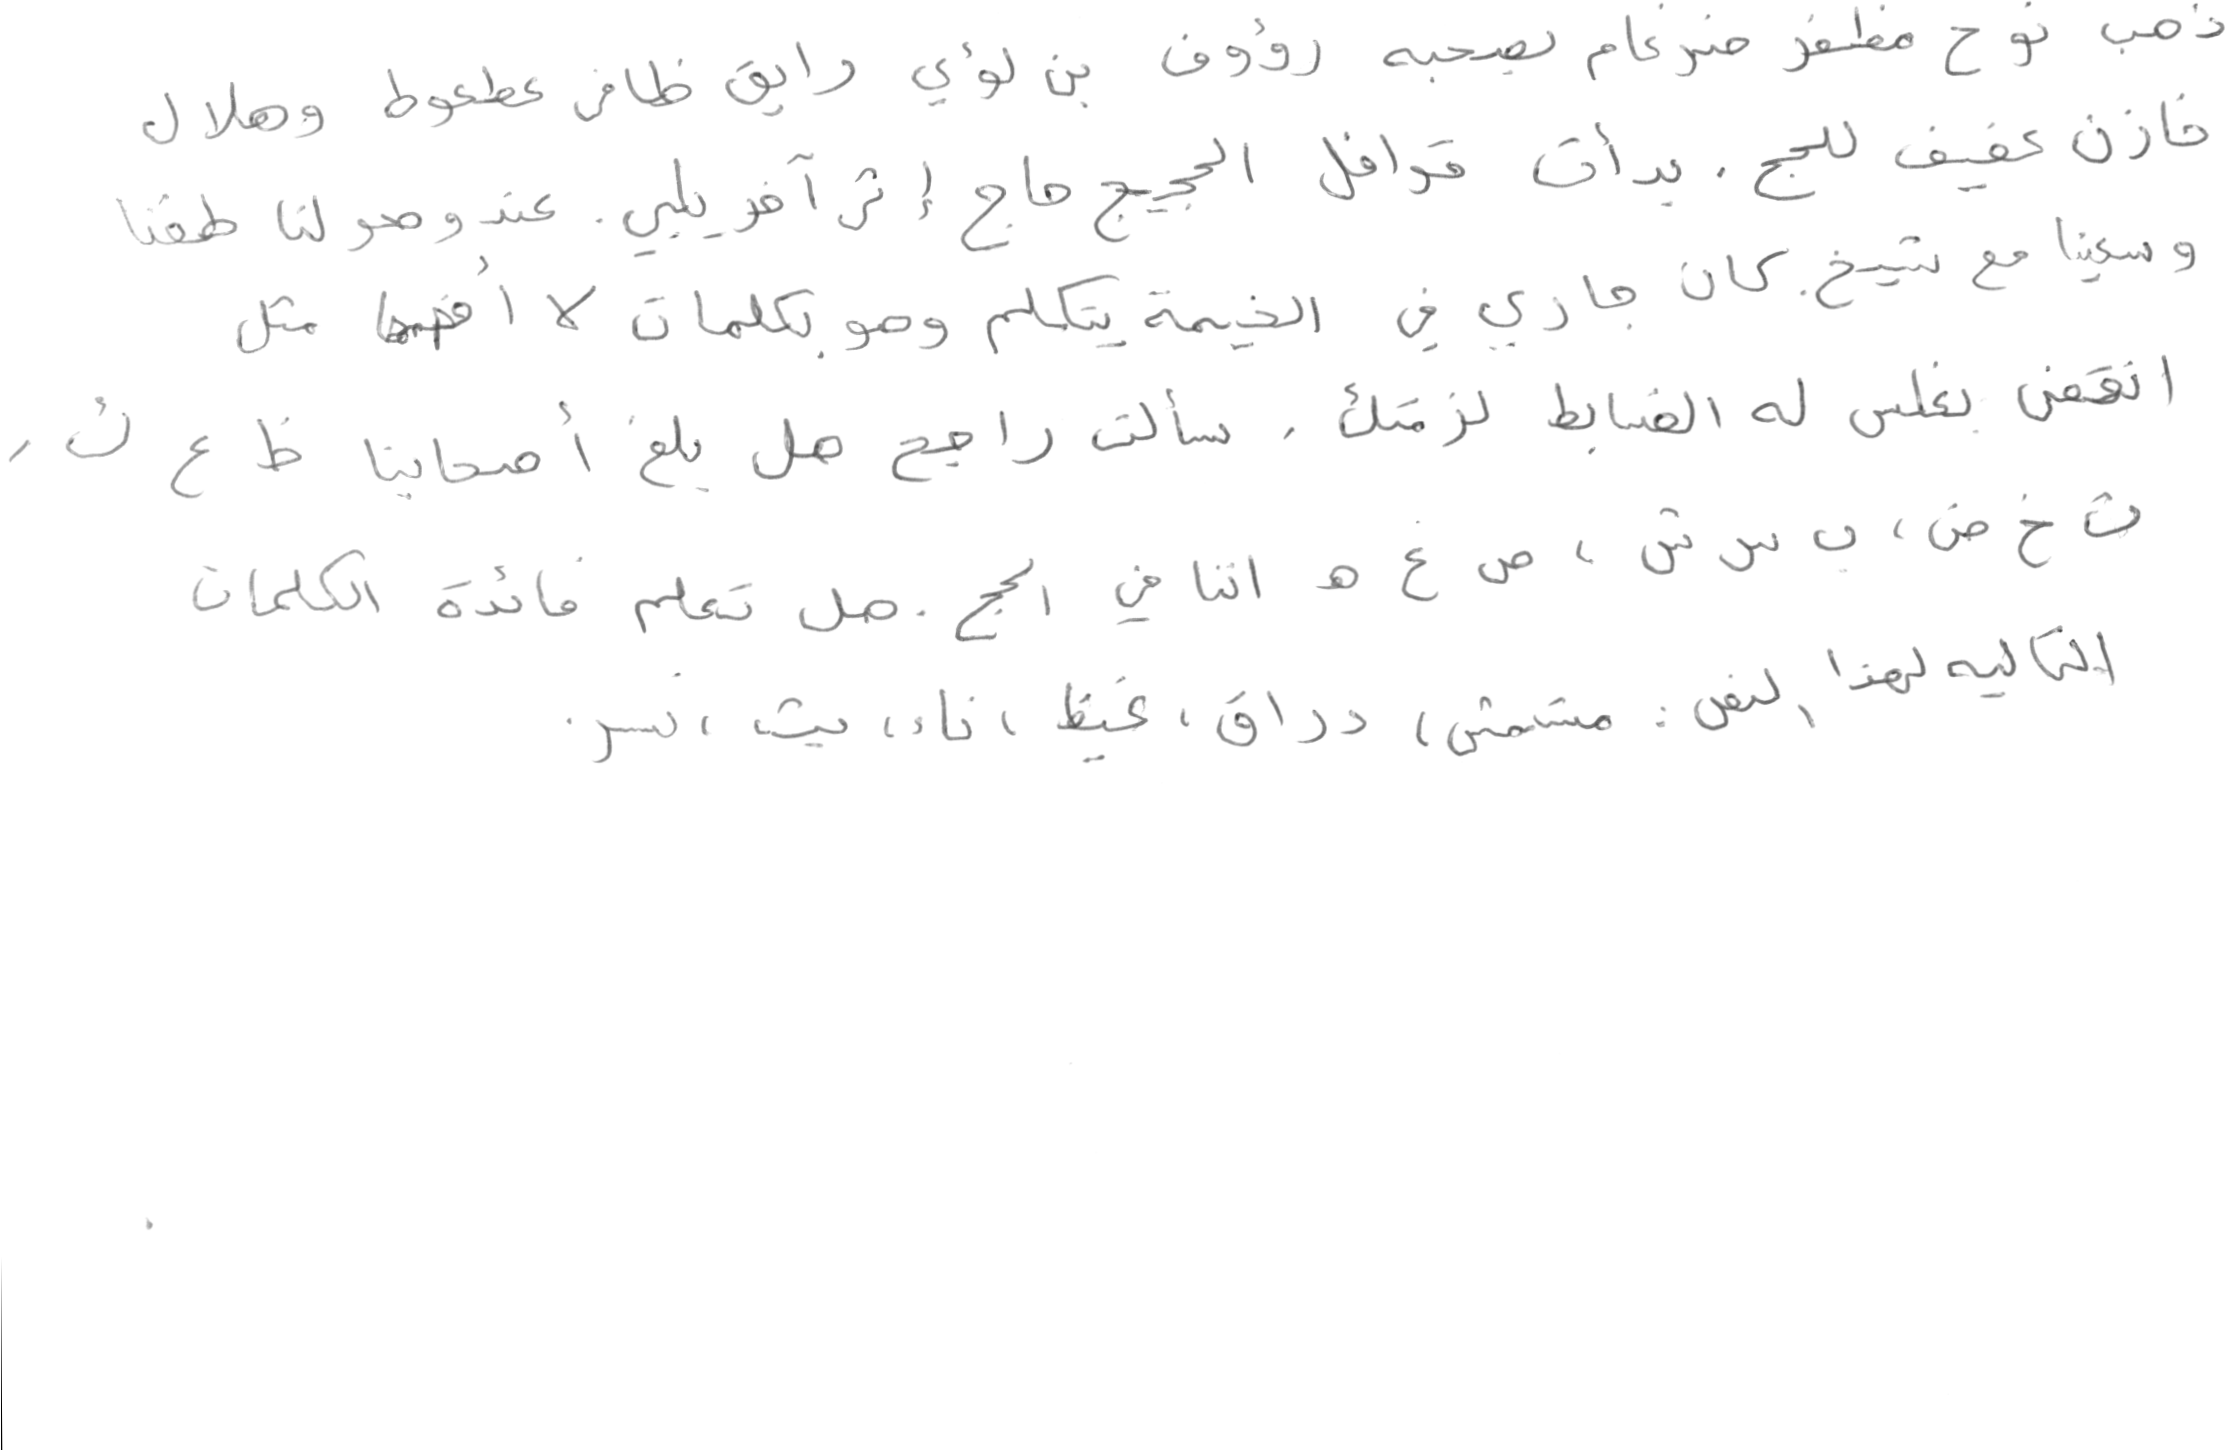 ذهب نوح مظفر ضرغام بصحبه رؤوف بن لؤي رايق ظافر عطعوط وهلال
خازن عفيف للحج . بدأت قوافل الحجيج حاج إثر آخر يلبي . عند وصولنا طفنا
وسعينا مع شيخ . كان جاري في الخيمة يتكلم وهو بكلمات لا أفهمها مثل
انقض بغلس له الضابط لزمتك ، سألت راجح هل بلغ أصحابنا ظ ع ث ،
ث خ ض ، ب س ش ، ص غ ه اننا في الحج . هل تعلم فائدة الكلمات
التاليه لهذا النص : مشمش ، دراق ، غيظ ، ناء ، يث ، نسر .